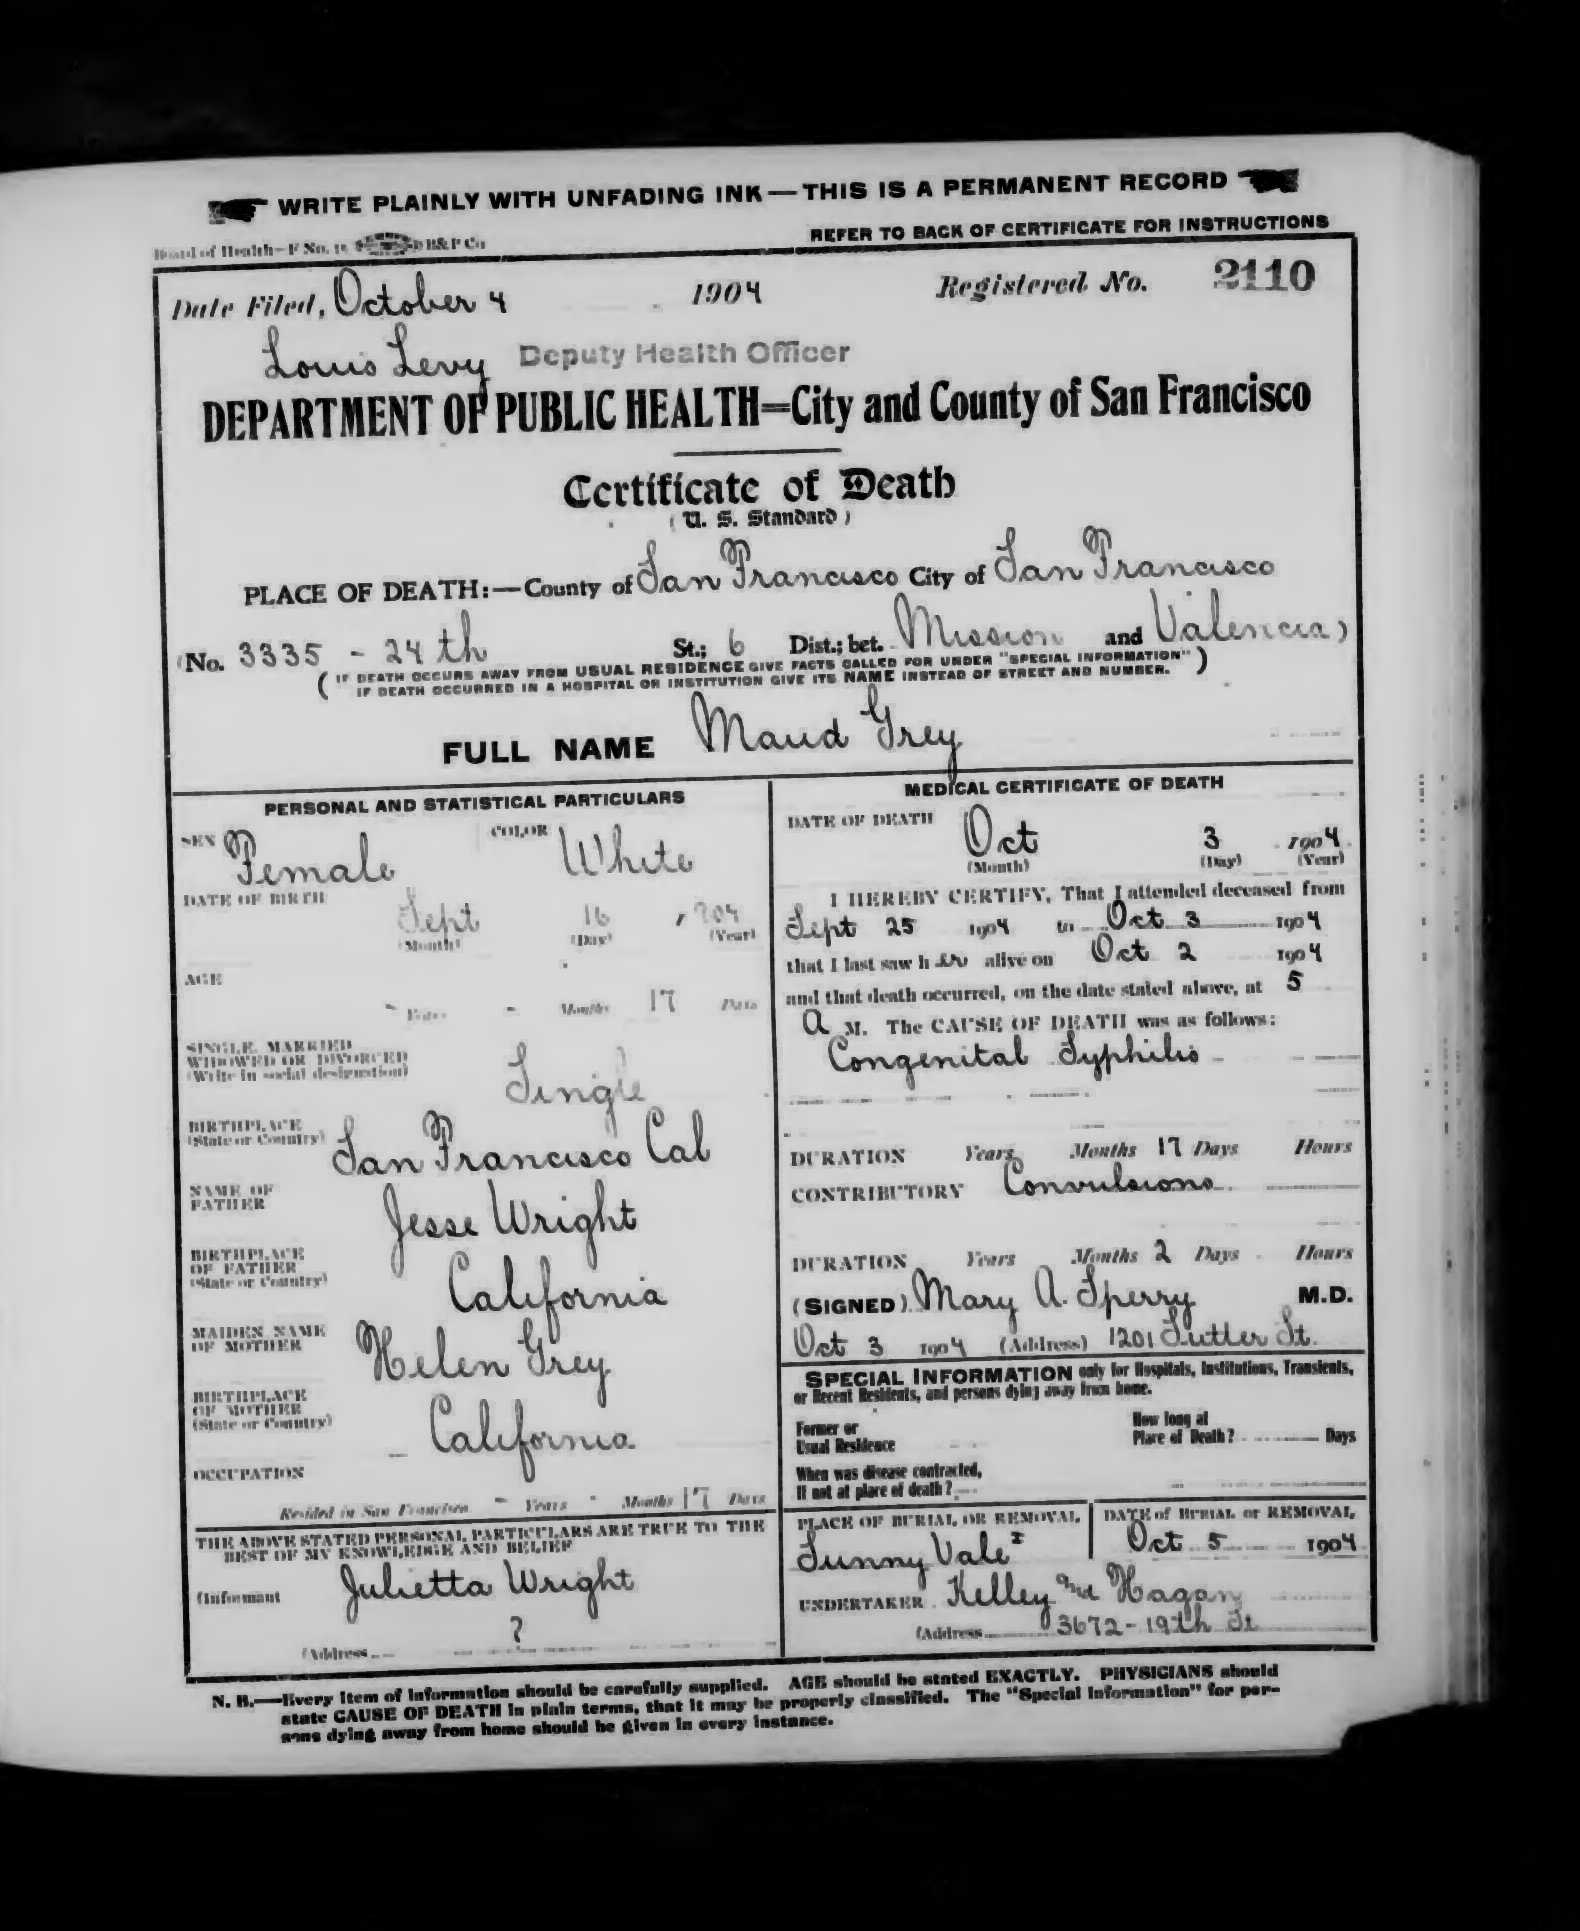 WRITE PLAINLY WITH UNFADING INK—THIS IS A PERMANENT RECORD
Board of Health—F No. B&P Co
REFER TO BACK OF CERTIFICATE FOR INSTRUCTIONS
Date Filed, October 4 1904 Registered No. 2110
Louis Levy Deputy Health Officer
DEPARTMENT OF PUBLIC HEALTH=City and County of San Francisco
Certificate of Death
(U. S. Standard)
PLACE OF DEATH:—County of San Francisco City of San Francisco
(No. 3335 - 24th St.; 6 Dist.; bet. Mission and Valencia)
(IF DEATH OCCURS AWAY FROM USUAL RESIDENCE GIVE FACTS CALLED FOR UNDER "SPECIAL INFORMATION"
IF DEATH OCCURRED IN A HOSPITAL OR INSTITUTION GIVE ITS NAME INSTEAD OF STREET AND NUMBER.)
FULL NAME Maud Grey
PERSONAL AND STATISTICAL PARTICULARS
SEX Female COLOR White
DATE OF BIRTH
Sept 16 , 904
(Month) (Day) (Year)
AGE
- Years - Months 17 Days
SINGLE, MARRIED
WIDOWED OR DIVORCED
(Write in social designation)
Single
BIRTHPLACE
(State or Country) San Francisco Cal
NAME OF
FATHER
Jesse Wright
BIRTHPLACE
OF FATHER
(State or Country)
California
MAIDEN NAME
OF MOTHER
Helen Grey
BIRTHPLACE
OF MOTHER
(State or Country)
California
OCCUPATION
Resided in San Francisco - Years - Months 17 Days
THE ABOVE STATED PERSONAL PARTICULARS ARE TRUE TO THE
BEST OF MY KNOWLEDGE AND BELIEF
(Informant Julietta Wright
(Address ?
MEDICAL CERTIFICATE OF DEATH
DATE OF DEATH
Oct 3 1904
(Month) (Day) (Year)
I HEREBY CERTIFY, That I attended deceased from
Sept 25 1904 to Oct 3 1904
that I last saw h er alive on Oct 2 1904
and that death occurred, on the date stated above, at 5
A M. The CAUSE OF DEATH was as follows:
Congenital Syphilis
DURATION Years Months 17 Days Hours
CONTRIBUTORY Convulsions
DURATION Years Months 2 Days Hours
(SIGNED) Mary A. Sperry M.D.
Oct 3 1904 (Address) 1201 Sutter St.
SPECIAL INFORMATION only for Hospitals, Institutions, Transients,
or Recent Residents, and persons dying away from home.
Former or
Usual Residence
How long at
Place of Death? Days
When was disease contracted,
If not at place of death?
PLACE OF BURIAL OR REMOVAL
Sunny Vale I
DATE of BURIAL or REMOVAL
Oct 5 1904
UNDERTAKER Kelley and Hagan
(Address 3672-19th St
N. B.—Every item of information should be carefully supplied. AGE should be stated EXACTLY. PHYSICIANS should
state CAUSE OF DEATH in plain terms, that it may be properly classified. The "Special Information" for per-
sons dying away from home should be given in every instance.